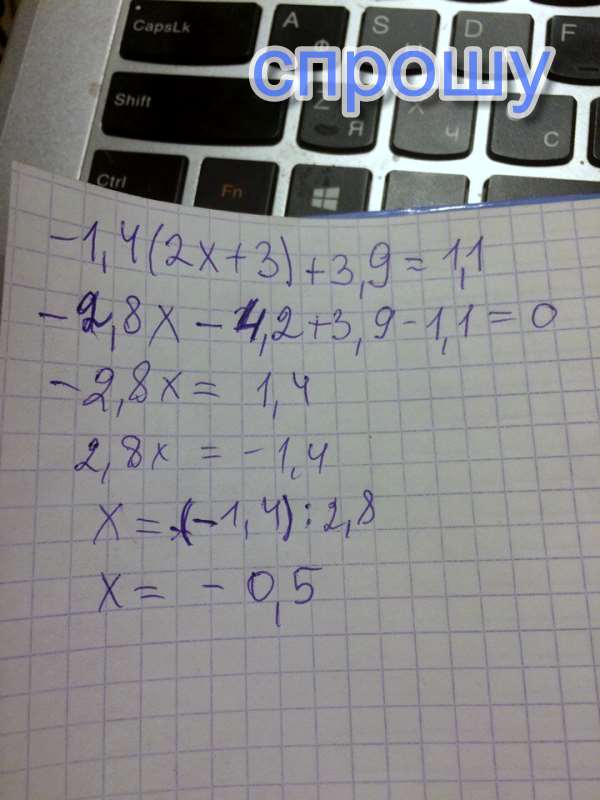 CapsLk A S D F
спрошу
Shift Z Я X Ч С
Ctrl Fn
-1,4(2x+3)+3,9=1,1
-2,8x-4,2+3,9-1,1=0
-2,8x=1,4
2,8x=-1,4
x=(-1,4):2,8
x=-0,5